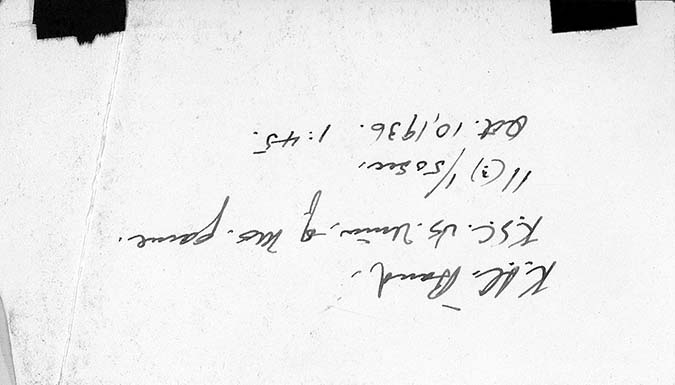 K.S.C. Band.
K.S.C. vs. Univ. of Mo. game.
11(?) 1/50 sec.
Oct. 10, 1936. 1:45.